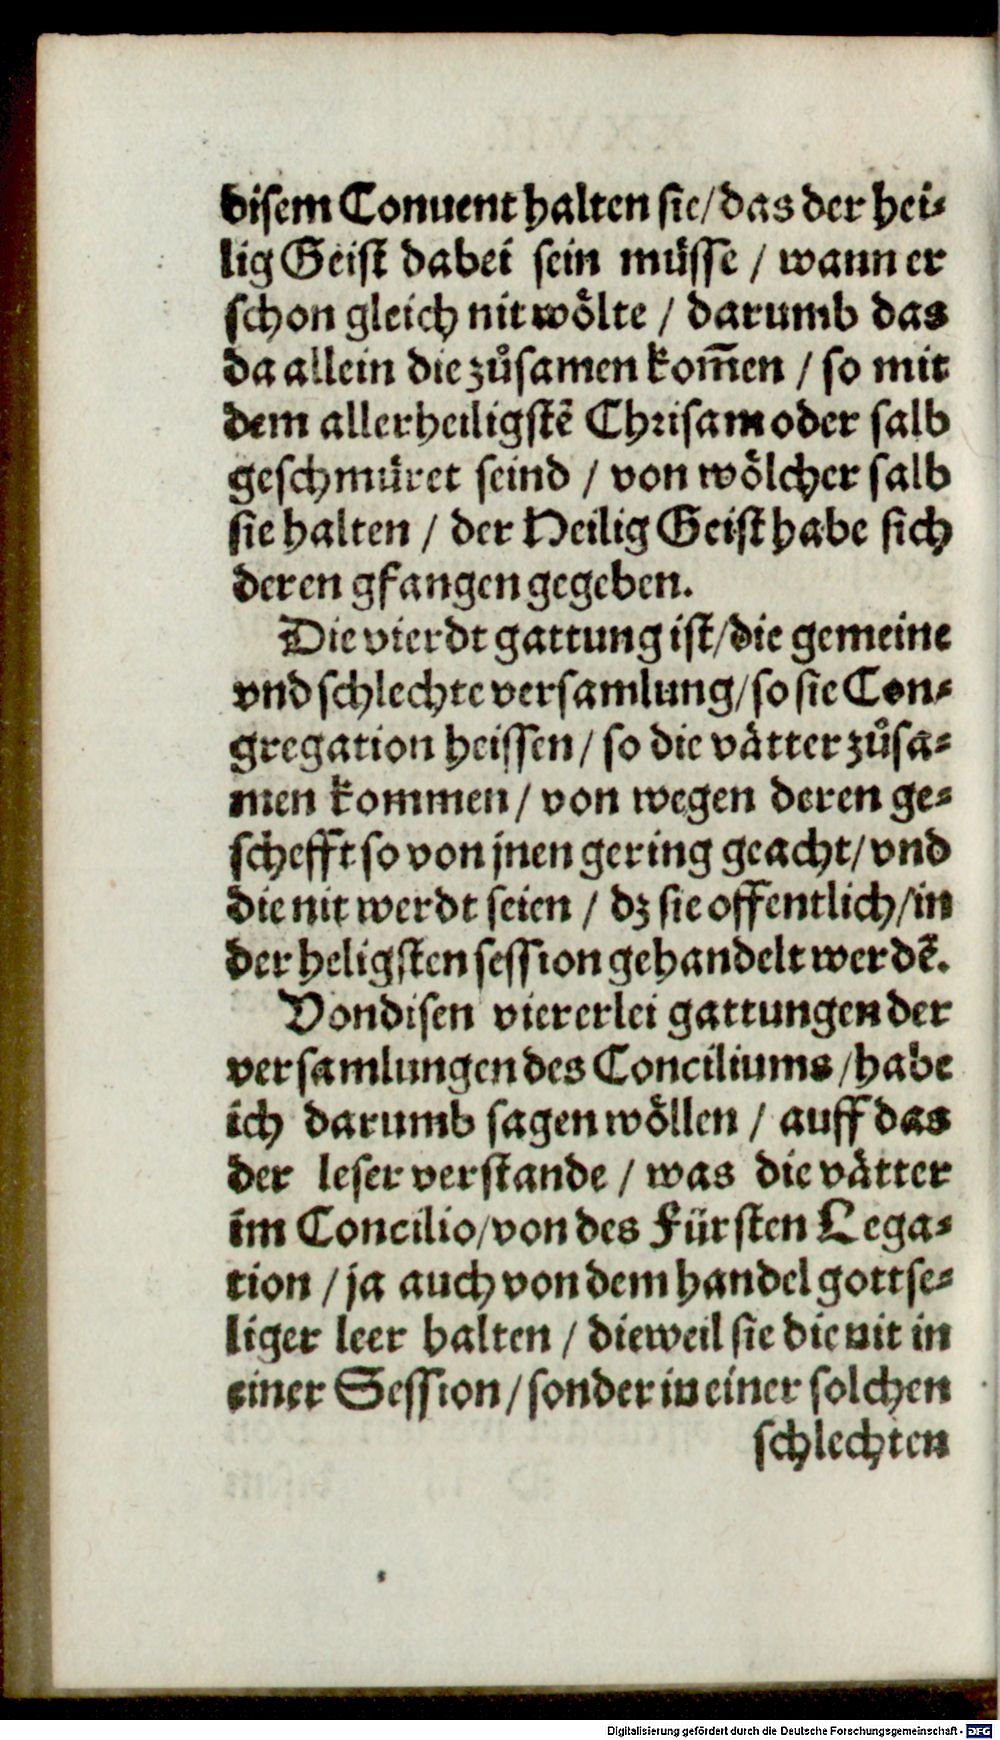 disem Conuent halten sie/das der hei⸗
lig Geist dabei sein müsse / wann er
schon gleich nit wölte / darumb das
da allein die zůsamen kom̃en / so mit
dem allerheiligstẽ Chrisam oder salb
geschmüret seind / von wölcher salb
sie halten / der Heilig Geist habe sich
deren gfangen gegeben.
Die vierdt gattung ist/die gemeine
vnd schlechte versamlung/so sie Con⸗
gregation heissen/ so die vätter zůsa⸗
men kommen/ von wegen deren ge⸗
schefft so von jnen gering geacht/ vnd
die nit werdt seien / dz sie offentlich/in
der heligsten session gehandelt werdẽ.
Von disen viererlei gattungen der
versamlungen des Conciliums/habe
ich darumb sagen wöllen / auff das
der leser verstande / was die vätter
im Concilio/von des Fürsten Lega⸗
tion / ja auch von dem handel gottse⸗
liger leer halten / dieweil sie die nit in
einer Session/sonder in einer solchen
schlechten
Digitalisierung gefördert durch die Deutsche Forschungsgemeinschaft - DFG